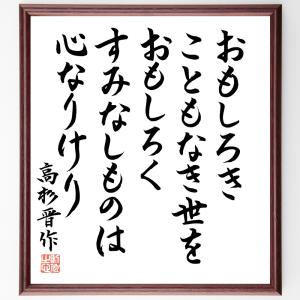 おもしろき
こともなき世を
おもしろく
すみなしものは
心なりけり
高杉晋作